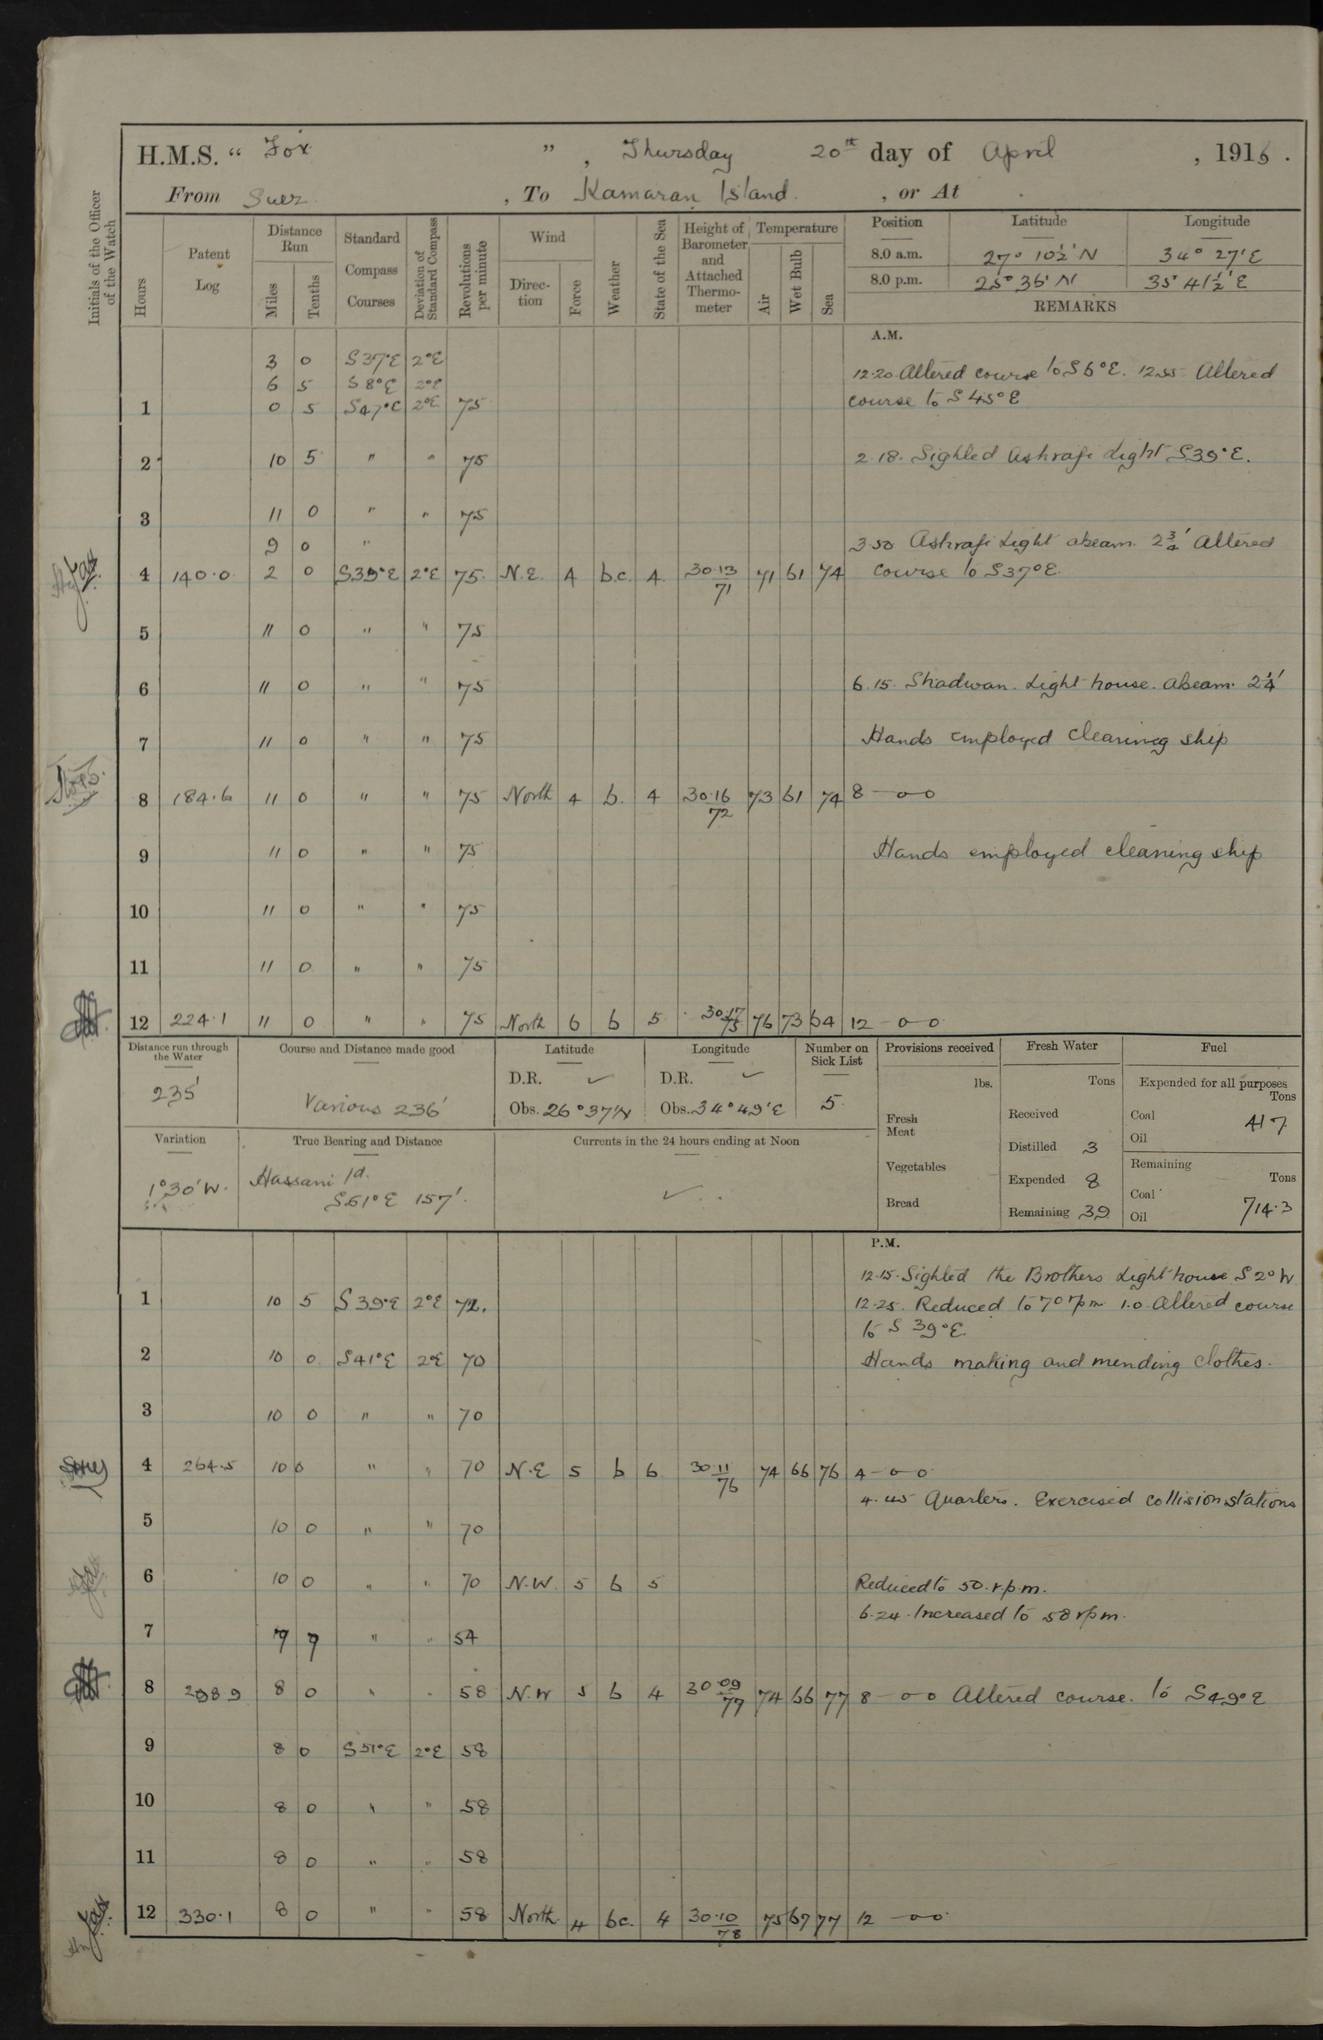 H.M.S. " Fox " , Thursday 20th day of April , 1916 .
From Suez , To Kamaran Island , or At .
Initials of the Officer of the Watch
Hours Patent Log Distance Run Miles Tenths Standard Compass Courses Deviation of Standard Compass Revolutions per minute Wind Direction Force Weather State of the Sea Height of Barometer and Attached Thermometer Temperature Air Wet Bulb Sea Position Latitude Longitude
8.0 a.m. 27° 10½' N 34° 27' E
8.0 p.m. 25° 36' N 35° 41½' E
REMARKS
A.M.
3 0 S37°E 2°E
6 5 S8°E 2°E 12.20 Altered course to S6°E. 12.55 Altered
1 0 5 S47°E 2°E 75 course to S45°E
2 10 5 " " 75 2.18. Sighted Ashrafi Light S39°E.
3 11 0 " " 75
9 0 " 3.50 Ashrafi Light abeam 2¾' Altered
4 140.0 2 0 S39°E 2°E 75 N.E. 4 b.c. 4 30.13 71 71 61 74 course to S37°E.
5 11 0 " " 75
6 11 0 " " 75 6.15. Shadwan. Light house. abeam. 2¼'
7 11 0 " " 75 Hands employed cleaning ship
8 184.6 11 0 " " 75 North 4 b. 4 30.16 72 73 61 74 8 - o - o
9 11 0 " " 75 Hands employed cleaning ship
10 11 0 " " 75
11 11 0 " " 75
12 224.1 11 0 " " 75 North 6 b 5 30.17 75 76 73 64 12 - o - o
Distance run through the Water Course and Distance made good Latitude Longitude Number on Sick List Provisions received Fresh Water Fuel
235' Various 236' D.R. ✓ D.R. ✓ 5 lbs. Tons Expended for all purposes Tons
Obs. 26° 37' N Obs. 34° 49' E Fresh Meat Received Coal 41.7
Oil
Variation True Bearing and Distance Currents in the 24 hours ending at Noon Distilled 3
1° 30' W. Hassani Id. ✓ Vegetables Expended 8 Remaining Tons
S61°E 157'. Bread Remaining 39 Coal 714.3
Oil
P.M.
12.15. Sighted the Brothers Light house S2°W
1 10 5 S39°E 2°E 72. 12.25. Reduced to 70 rpm 1.0. Altered course
to S 39°E.
2 10 0 S41°E 2°E 70 Hands making and mending clothes.
3 10 0 " " 70
4 264.5 10 0 " " 70 N.E 5 b 6 30.11 76 74 66 76 4 - o - o
4.45 Quarters. Exercised collision stations
5 10 0 " " 70
6 10 0 " " 70 N.W. 5 b 5 Reduced to 50. r.p.m.
6.24. Increased to 58 rpm.
7 7 7 " " 54
8 298.9 8 0 " " 58 N.W 5 b 4 30.09 77 74 66 77 8 - o - o Altered course. to S49°E
9 8 0 S51°E 2°E 58
10 8 0 " " 58
11 8 0 " " 58
12 330.1 8 0 " " 58 North 4 bc. 4 30.10 78 75 67 77 12 - o - o